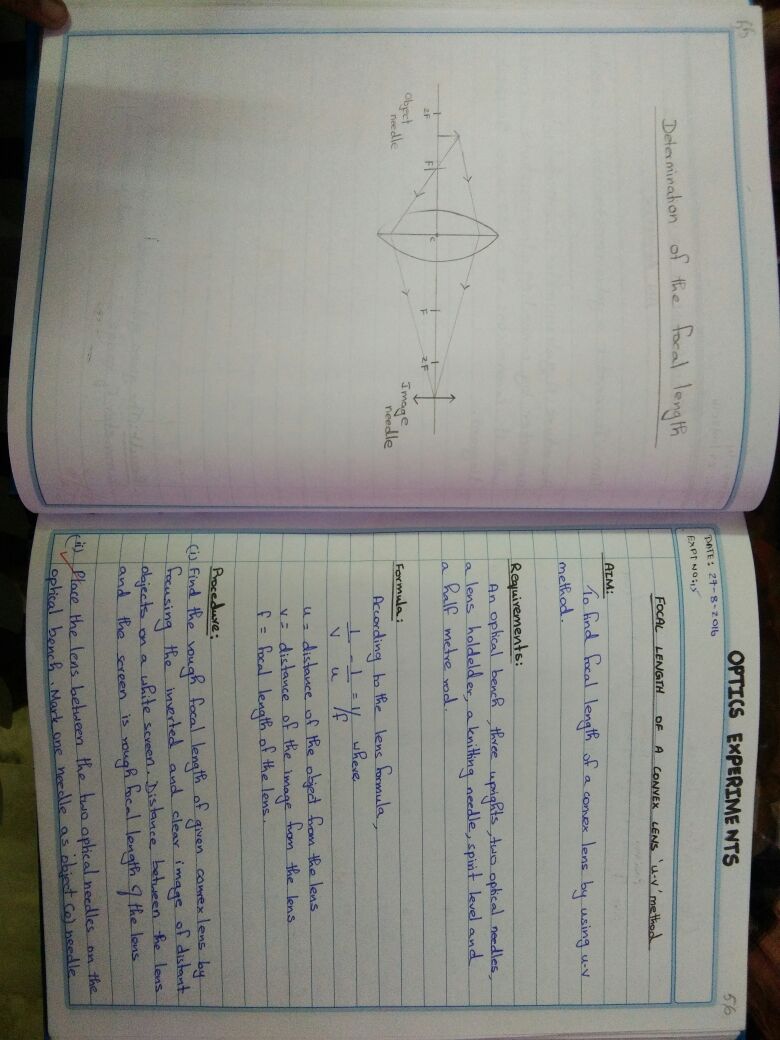 Determination of the focal length
2F
F
C
F
2F
Object
needle
Image
needle
OPTICS EXPERIMENTS
56
DATE: 27-8-2016
EXPT NO: 15
FOCAL LENGTH OF A CONVEX LENS 'u-v' method
AIM:
To find focal length of a convex lens by using u-v
method.
Requirements:
An optical bench, three uprights, two optical needles,
a lens holdelder, a knitting needle, spirit level and
a half metre rod.
Formula:
According to the lens formula,
1/v - 1/u = 1/f where
u = distance of the object from the lens
v = distance of the image from the lens
f = focal length of the lens.
Procedure:
(i) Find the rough focal length of given convex lens by
focusing the inverted and clear image of distant
objects on a white screen. Distance between the lens
and the screen is rough focal length of the lens
(ii) Place the lens between the two optical needles on the
optical bench. Mark one needle as object (o) needle